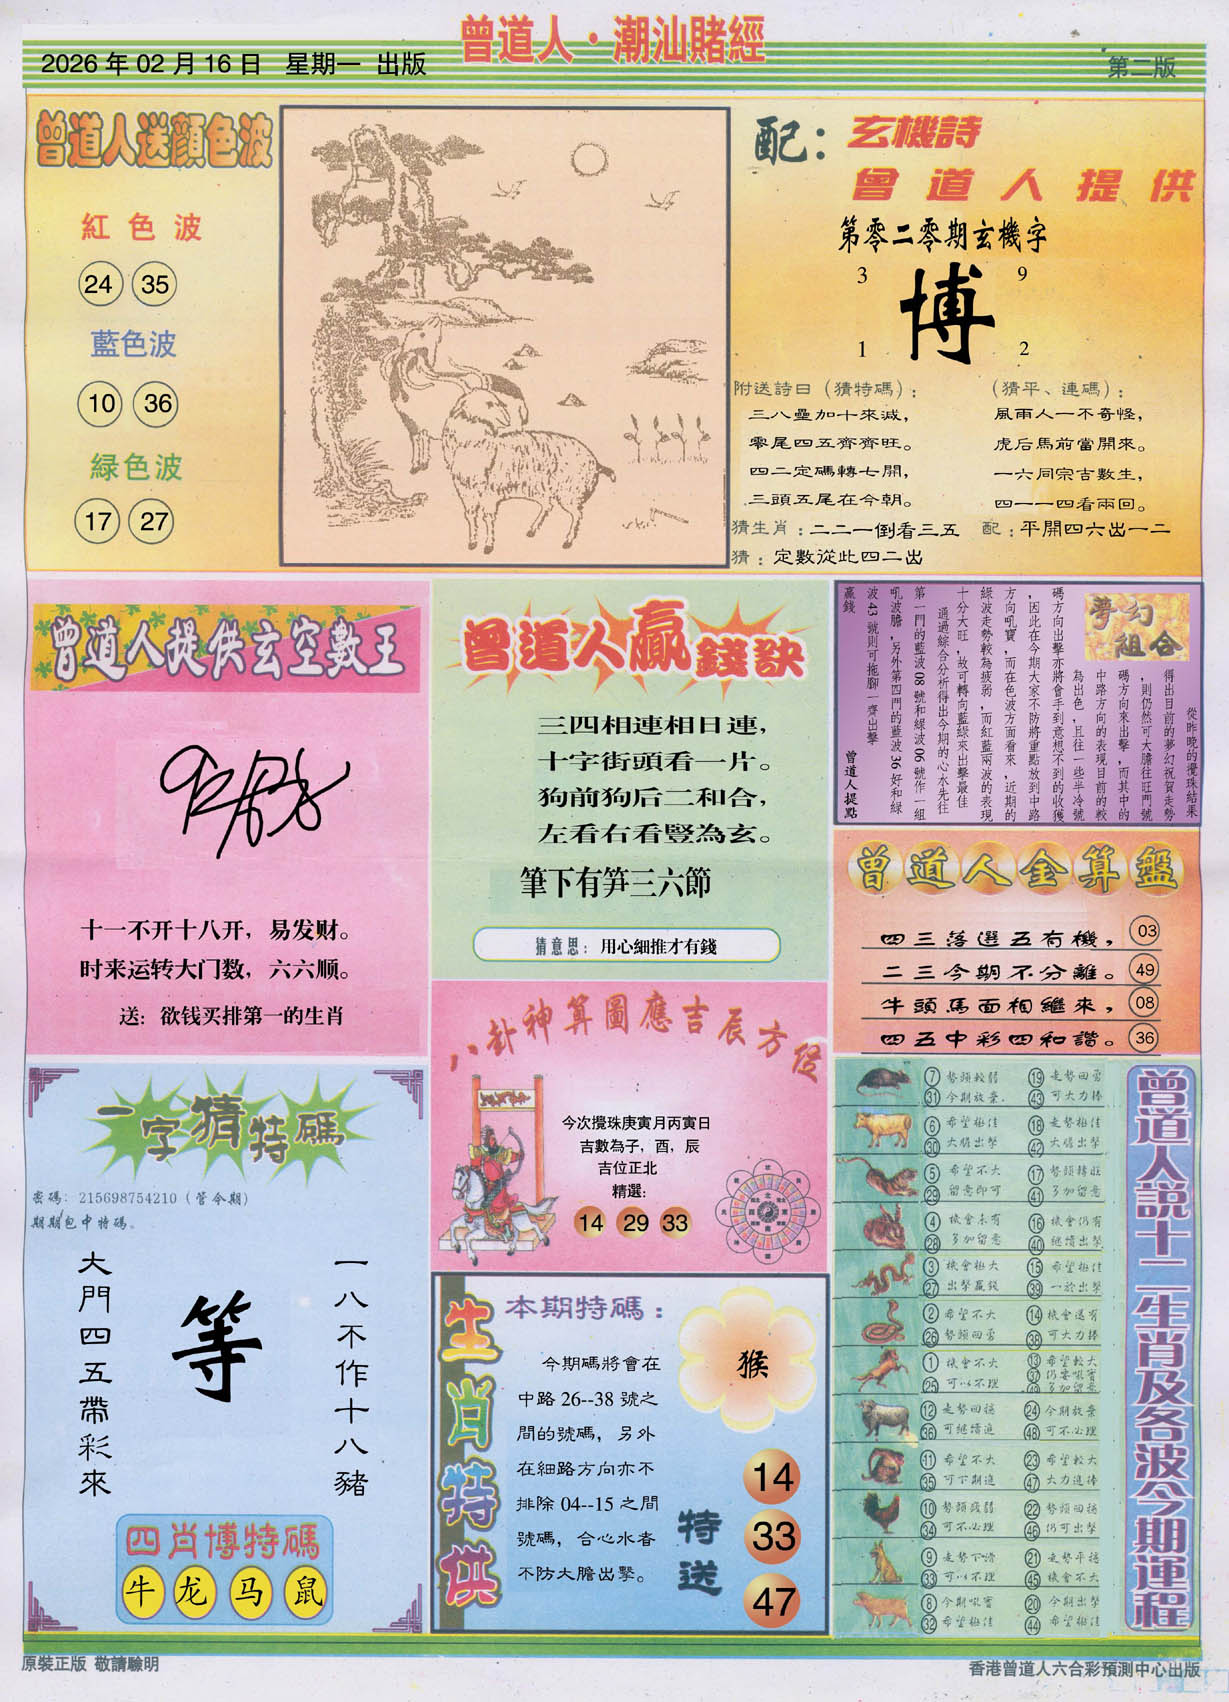 曾道人·潮汕賭經
2026年02月16日 星期一 出版
第二版
曾道人送顏色波
紅色波
24 35
藍色波
10 36
緑色波
17 27
配：玄機詩
曾道人提供
第零二零期玄機字
3 9
博
1 2
附送詩曰（猜特碼）：
三八壘加十來減，
零尾四五齊齊旺。
四二定碼轉七開，
三頭五尾在今朝。
（猜平、連碼）：
風雨人一不奇怪，
虎后馬前當開來。
一六同宗吉數生，
四一一四看兩回。
猜生肖：二二一倒看三五
配：平開四六出一二
猜：定數從此四二出
曾道人提供玄空數王
十一不开十八开，易发财。
时来运转大门数，六六顺。
送：欲钱买排第一的生肖
曾道人贏錢訣
三四相連相日連，
十字街頭看一片。
狗前狗后二和合，
左看右看豎為玄。
筆下有笋三六節
猜意思：用心細推才有錢
夢幻組合
從昨晚的攪珠結果
得出目前的夢幻祝賀走勢
，則仍然可大膽往旺門號
碼方向來出擊，而其中的
中路方向的表現目前的較
為出色，且往一些半冷號
碼方向出擊亦將會手到意想不到的收獲
，因此在今期大家不防將重點放到中路
方向吼寶，而在色波方面看來，近期的
綠波走勢較為疲弱，而紅藍兩波的表現
十分大旺，故可轉向藍綠來出擊最佳
通過綜合分析得出今期的心水先往
第一門的藍波08號和綠波06號作一組
吼波膽，另外第四門的藍波36好和綠
波43號則可拖腳一齊出擊
贏錢
曾道人提點
曾道人金算盤
四三落選五有機， 03
二三今期不分離。 49
牛頭馬面相繼來， 08
四五中彩四和諧。 36
一字猜特碼
密碼：215698754210（管令期）
期期包中特碼。
一八不作十八豬
等
大門四五帶彩來
四肖博特碼
牛 龙 马 鼠
八卦神算圖應吉辰方位
今次攪珠庚寅月丙寅日
吉數為子，酉，辰
吉位正北
精選：
14 29 33
生肖特供
本期特碼：
猴
今期碼將會在
中路26--38號之
間的號碼，另外
在細路方向亦不
排除04--15之間
號碼，合心水者
不防大膽出擊。
特送
14
33
47
曾道人說十二生肖及各波今期運程
7 勢頭較弱 19 走勢回勇
31 今期放棄. 43 可大力捧
6 希望極佳 18 走勢極佳
30 大膽出擊 42 大膽出擊
5 希望不大 17 勢頭轉旺
29 留意即可 41 多加留意
4 機會未有 16 機會仍有
28 多加留意 40 繼續出擊
3 機會極大 15 希望極佳
27 出擊贏錢 39 一於出擊
2 希望不大 14 機會還有
26 勢頭回勇 38 可大力捧
1 機會不大 13 希望較大
25 可以不理 37 仍要吼實
49 多加留意
12 走勢回穩 24 今期放棄
36 可繼續追 48 可不必理
11 希望不大 23 希望較大
35 可下期追 47 大力追捧
10 勢頭疲弱 22 勢頭回穩
34 可不必理 46 仍可出擊
9 走勢下滑 21 走勢平穩
33 可以不理 45 機會不大
8 今期吼實 20 今期出擊
32 希望極佳 44 希望極佳
原裝正版 敬請驗明
香港曾道人六合彩預測中心出版